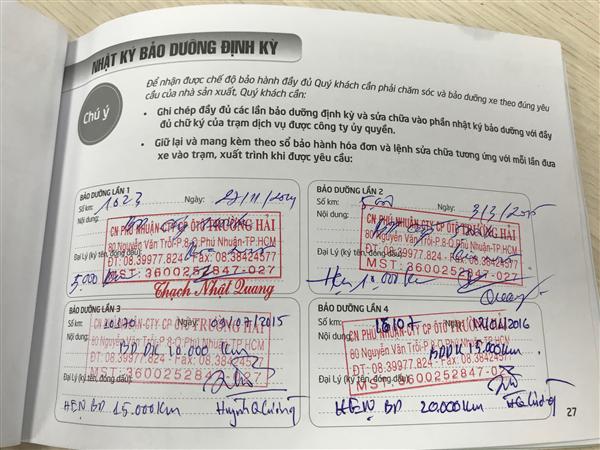 NHẬT KÝ BẢO DƯỠNG ĐỊNH KỲ
Chú ý
Để nhận được chế độ bảo hành đầy đủ Quý khách cần phải chăm sóc và bảo dưỡng xe theo đúng yêu
cầu của nhà sản xuất, Quý khách cần:
• Ghi chép đầy đủ các lần bảo dưỡng định kỳ và sửa chữa vào phần nhật ký bảo dưỡng với đầy
đủ chữ ký của trạm dịch vụ được công ty ủy quyền.
• Giữ lại và mang kèm theo sổ bảo hành hóa đơn và lệnh sửa chữa tương ứng với mỗi lần đưa
xe vào trạm, xuất trình khi được yêu cầu:
BẢO DƯỠNG LẦN 1
Số km: 1623 Ngày: /11/2014
Nội dung:
CN PHÚ NHUẬN-CTY CP ÔTÔ TRƯỜNG HẢI
80 Nguyễn Văn Trỗi-P.8-Q.Phú Nhuận-TP.HCM
Đại Lý (ký tên, đóng dấu)
ĐT: 08.39977.824 - Fax: 08.38424577
MST: 3600252847-027
5.000
Thạch Nhật Quang
BẢO DƯỠNG LẦN 2
Số km: Ngày: 3/3/2015
Nội dung:
CN PHÚ NHUẬN-CTY CP ÔTÔ TRƯỜNG HẢI
80 Nguyễn Văn Trỗi-P.8-Q.Phú Nhuận-TP.HCM
Đại Lý (ký tên, đóng dấu)
ĐT: 08.39977.824 - Fax: 08.38424577
MST: 3600252847-027
Hẹn 10.000 Km
Quang
BẢO DƯỠNG LẦN 3
Số km: Ngày: 09/07/2015
CN PHÚ NHUẬN-CTY CP ÔTÔ TRƯỜNG HẢI
Nội dung: BDDK 10.000 Km
80 Nguyễn Văn Trỗi-P.8-Q.Phú Nhuận-TP.HCM
ĐT: 08.39977.824 - Fax: 08.38424577
Đại Lý (ký tên, đóng dấu):
MST: 3600252847-027
HẸN BD 15.000Km Huỳnh Q Cường
BẢO DƯỠNG LẦN 4
Số km: 15107 Ngày: /2016
CN PHÚ NHUẬN-CTY CP ÔTÔ TRƯỜNG HẢI
Nội dung: BDDK 15.000 Km
80 Nguyễn Văn Trỗi-P.8-Q.Phú Nhuận-TP.HCM
ĐT: 08.39977.824 - Fax: 08.38424577
Đại Lý (ký tên, đóng dấu):
MST: 3600252847-027
HẸN BD 20.000Km HQ Cường
27